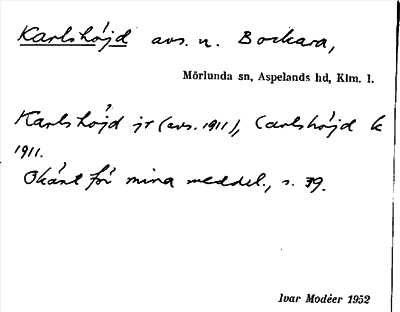 Karlshöjd avs. u. Bockara,
Mörlunda sn, Aspelands hd, Klm. l.
Karlshöjd jr (avs. 1911), Carlshöjd k
1911.
Okänt för mina meddel., s. 39.
Ivar Modéer 1952